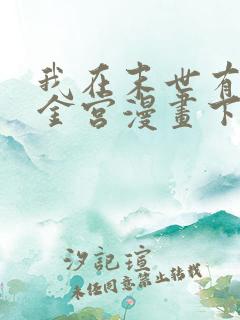 我在末世有
全宫漫畫下
汐記瑄
未经同意禁止转载